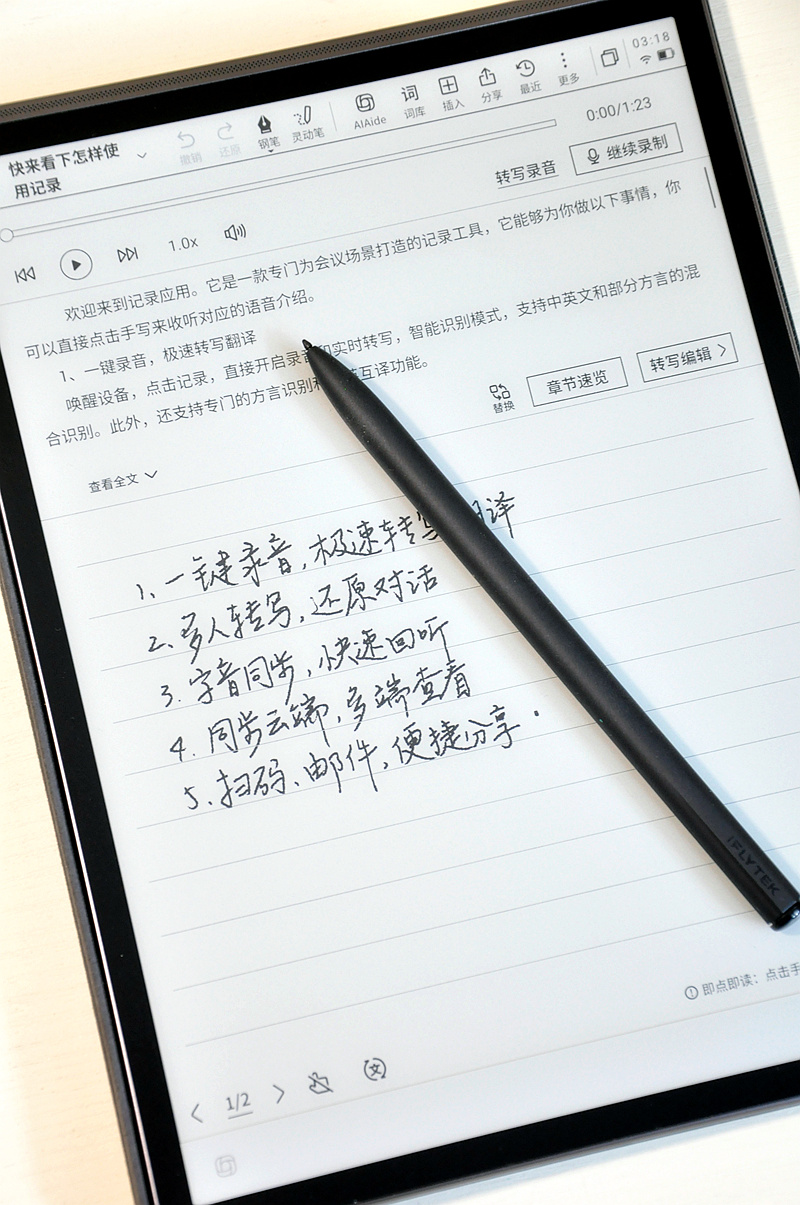 03:18
快来看下怎样使
用记录
撤销 还原 钢笔 灵动笔 AIAide 词库 插入 分享 最近 更多
0:00/1:23
转写录音 继续录制
1.0x
欢迎来到记录应用。它是一款专门为会议场景打造的记录工具，它能够为你做以下事情，你
可以直接点击手写来收听对应的语音介绍。
1、一键录音，极速转写翻译
唤醒设备，点击记录，直接开启录音和实时转写，智能识别模式，支持中英文和部分方言的混
合识别。此外，还支持专门的方言识别和 互译功能。
替换 章节速览 转写编辑
查看全文
1、一键录音，极速转写 译
2、多人转写，还原对话
3. 字音同步，快速回听
4. 同步云端，多端查看
5、扫码、邮件，便捷分享.
iFLYTEK
即点即读：点击手
1/2